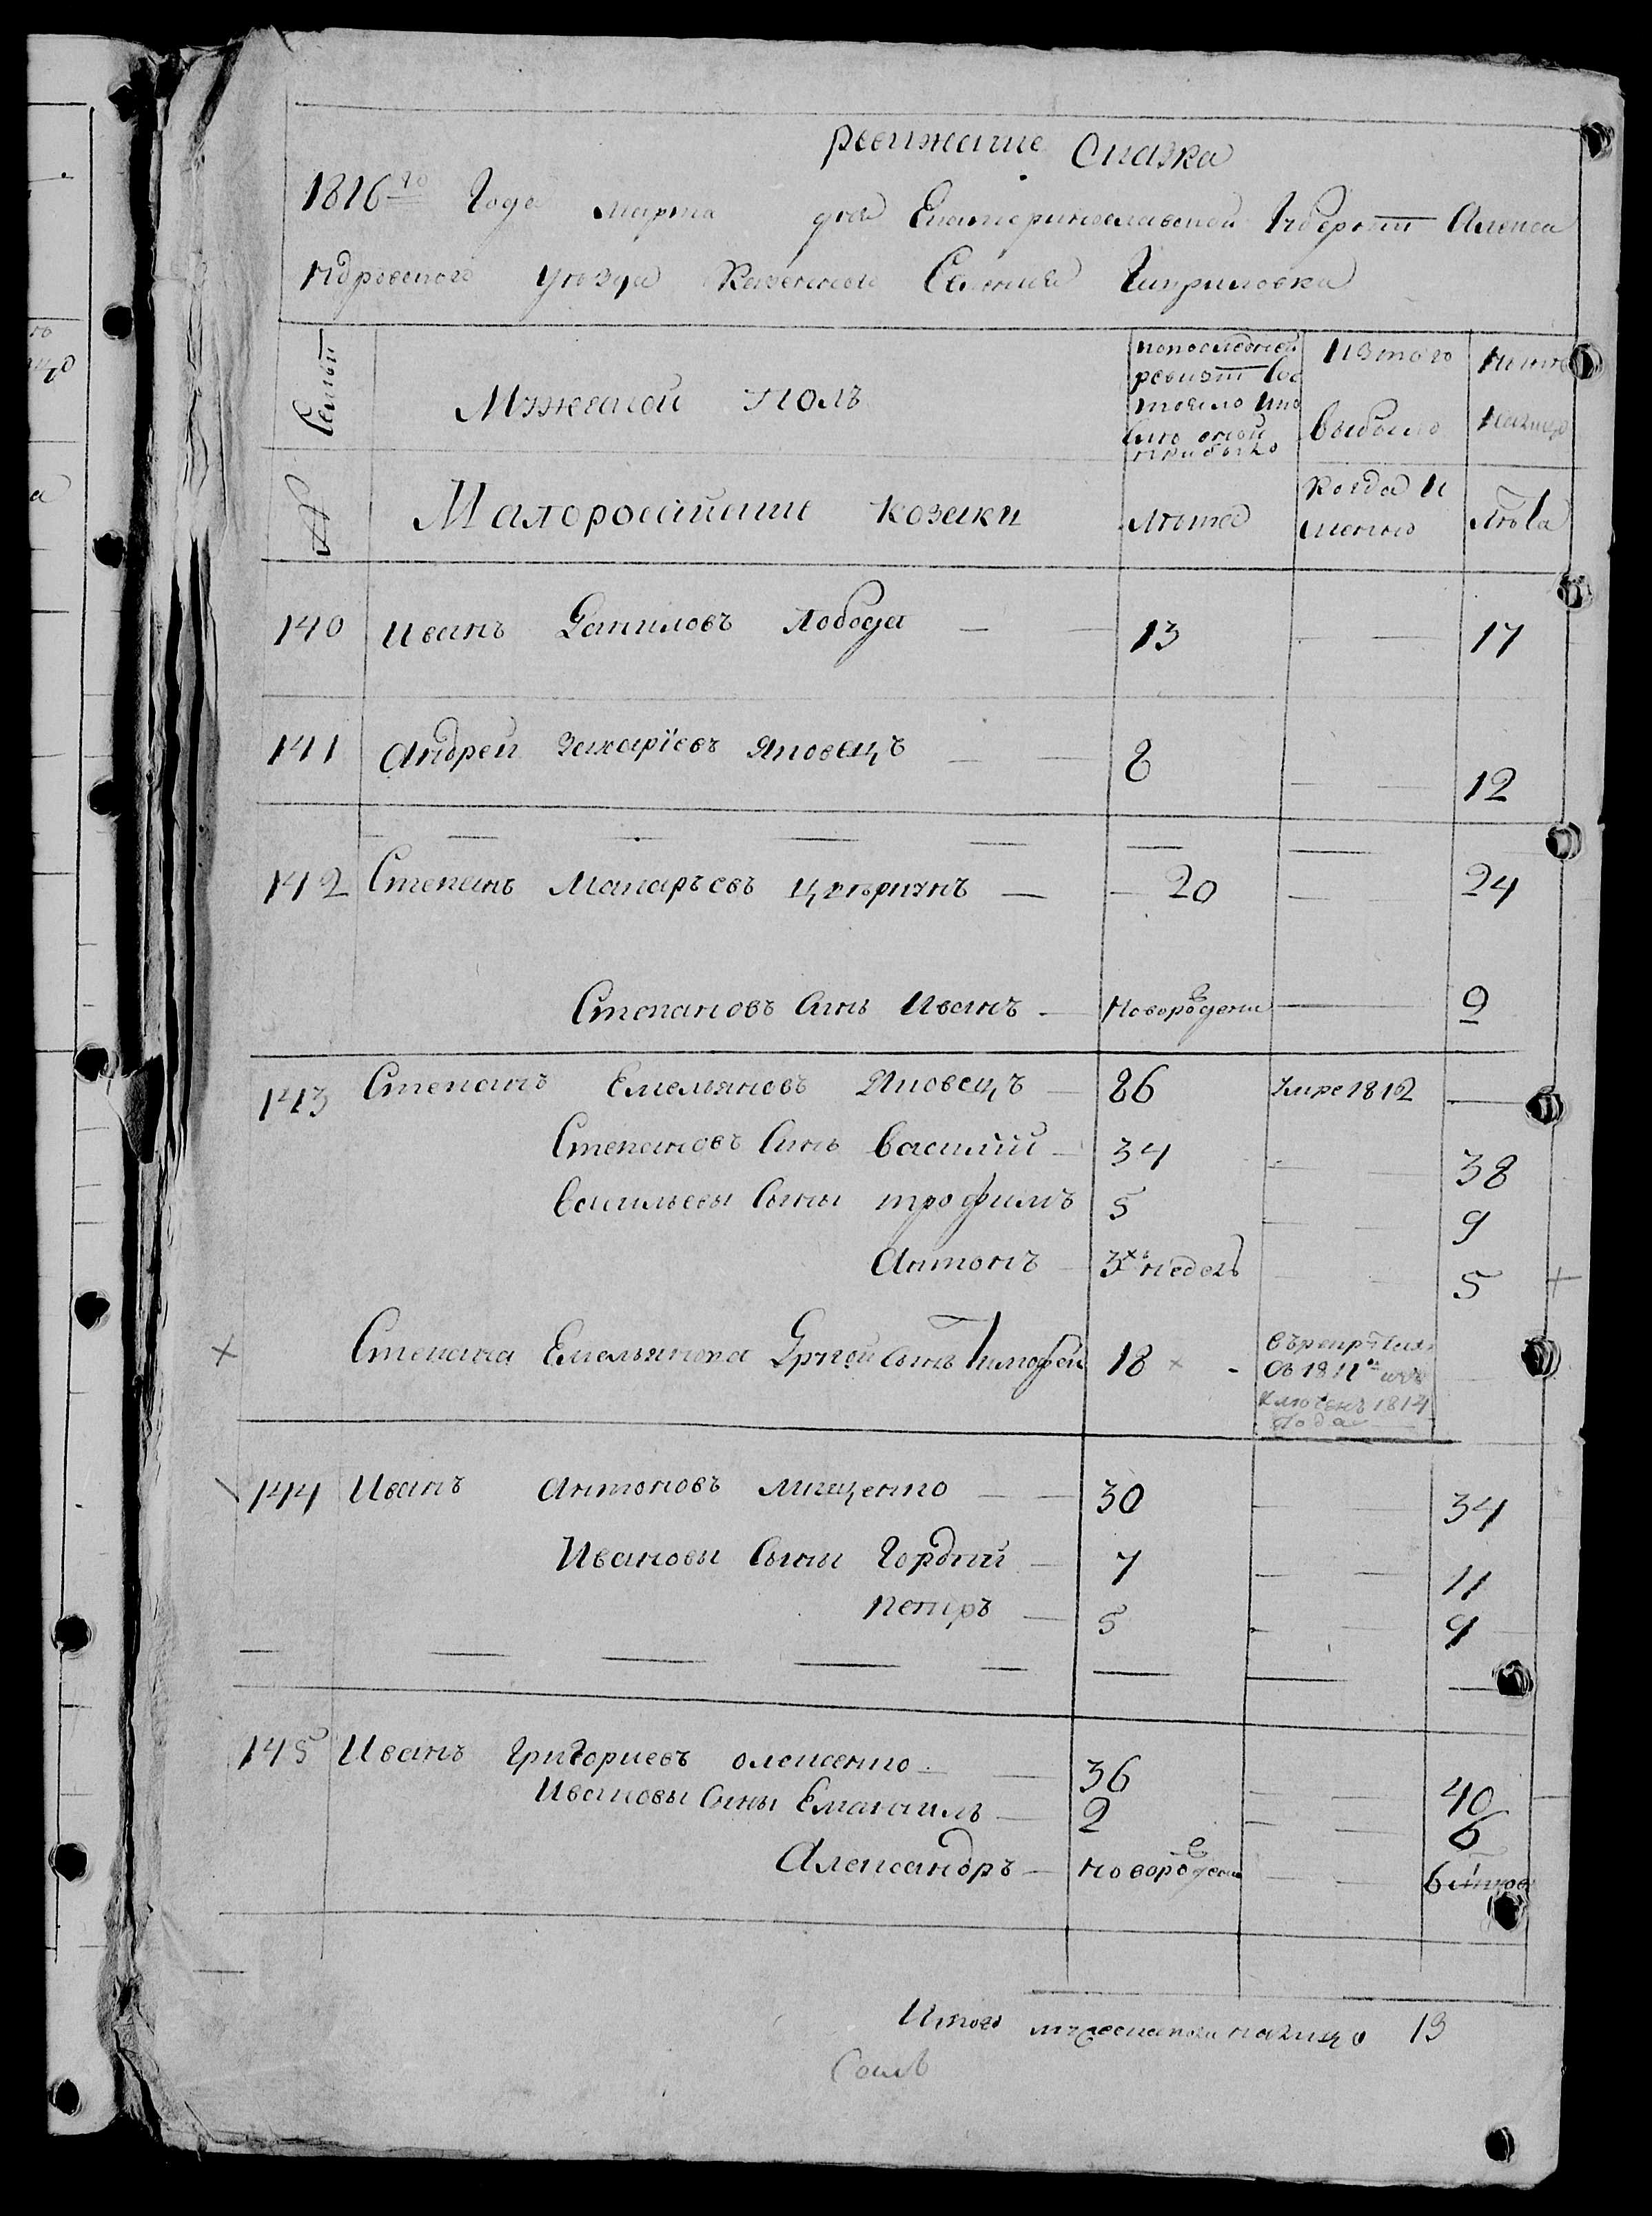 ревижъание Сказка
1816го Года марта дня Екатеринославской Губернїи Алекса
ндровского уезда Казенного Селения Гавриловка
Семьи
Мужеской полъ
попоследней
ревизїи Сос
тояло ипо
сле оной
прибыло
Изтого
выбыло
Ныне
налицо
№
Малоросийские козаки
лета
Когда и
менно
Лета
140 Иванъ Даниловъ Лобода — — 13 — — 17
141 Андрей Захарїевъ Яковецъ — — 8 — — 12
142 Степанъ Макарьевъ — — 20 — — 24
Степановъ Синъ Иванъ — Новорожден — 9
143 Степанъ Емельяновъ Яковецъ — 86 Умре 1812 —
Степановъ Синъ Василий — 34 — 38
Васильевы Сыны трофимъ 5 — — 9
Антонъ — 3хъ недель — — 5 +
× Степана Емельянова Другой Сынъ Тимофей 18 × -
Въ рекр
въ 1811м
ключенъ 1814
Года
144 Иванъ Антоновъ — — 30 — — 34
Ивановы Сыны Гордий — 7 — — 11
петръ — 5 — 9
145 Иванъ Григориевъ — — 36 — — 40
Ивановы Сыны Емануилъ — 2 — — 6
Александръ — новорожден — — 6
Итого мужеска пола налицо 13